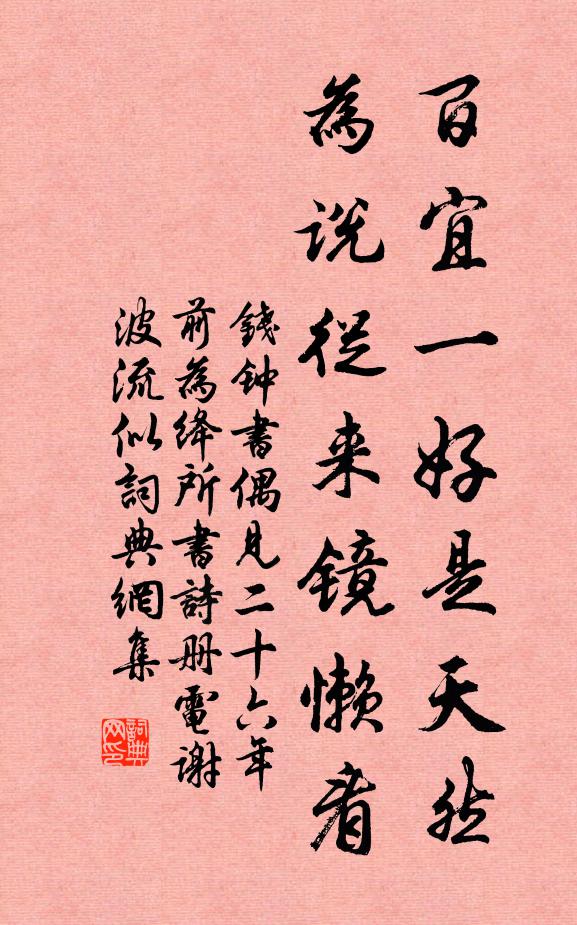 百宜一好是天然
為说從来镜懒看
錢钟書偶見二十六年
前為绛所書詩册電谢
波流似詞典網集
詞典网印